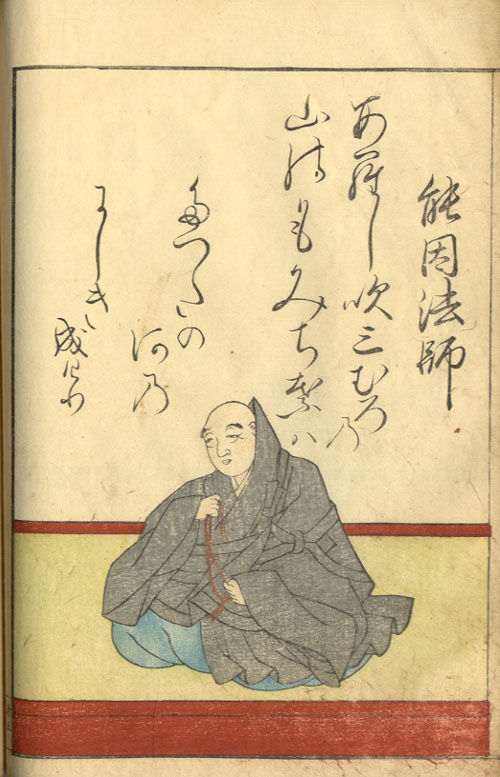 能因法師
あらし吹三むろの
山のもみち葉ハ
たつたの
河の
にしき成けり